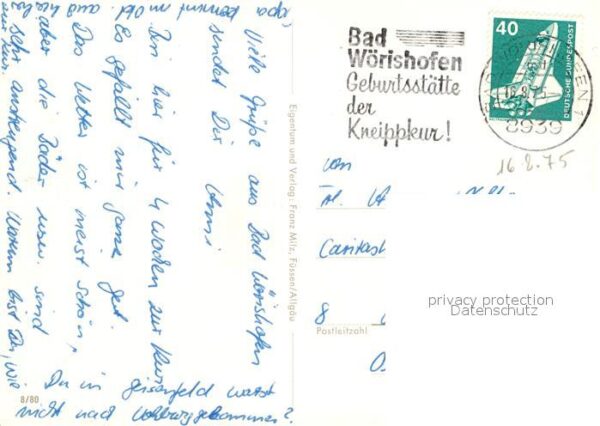 Viele Grüße aus Bad Wörishofen
sendet Dir Anni
Bin hier für 4 Wochen zur Kur
Es gefällt mir ganz gut.
Das Wetter ist meist schön,
aber die Bäder usw. sind
sehr anstrengend. Warum bist Du, wie
Du in Geisenfeld warst
nicht nach Vohburg gekommen?
8/80
Eigentum und Verlag: Franz Milz, Füssen/Allgäu
Bad
Wörishofen
Geburtsstätte
der
Kneippkur!
40
DEUTSCHE BUNDESPOST
16.8.75
8939
16.8.75
von
Caritas
8
Postleitzahl
privacy protection
Datenschutz